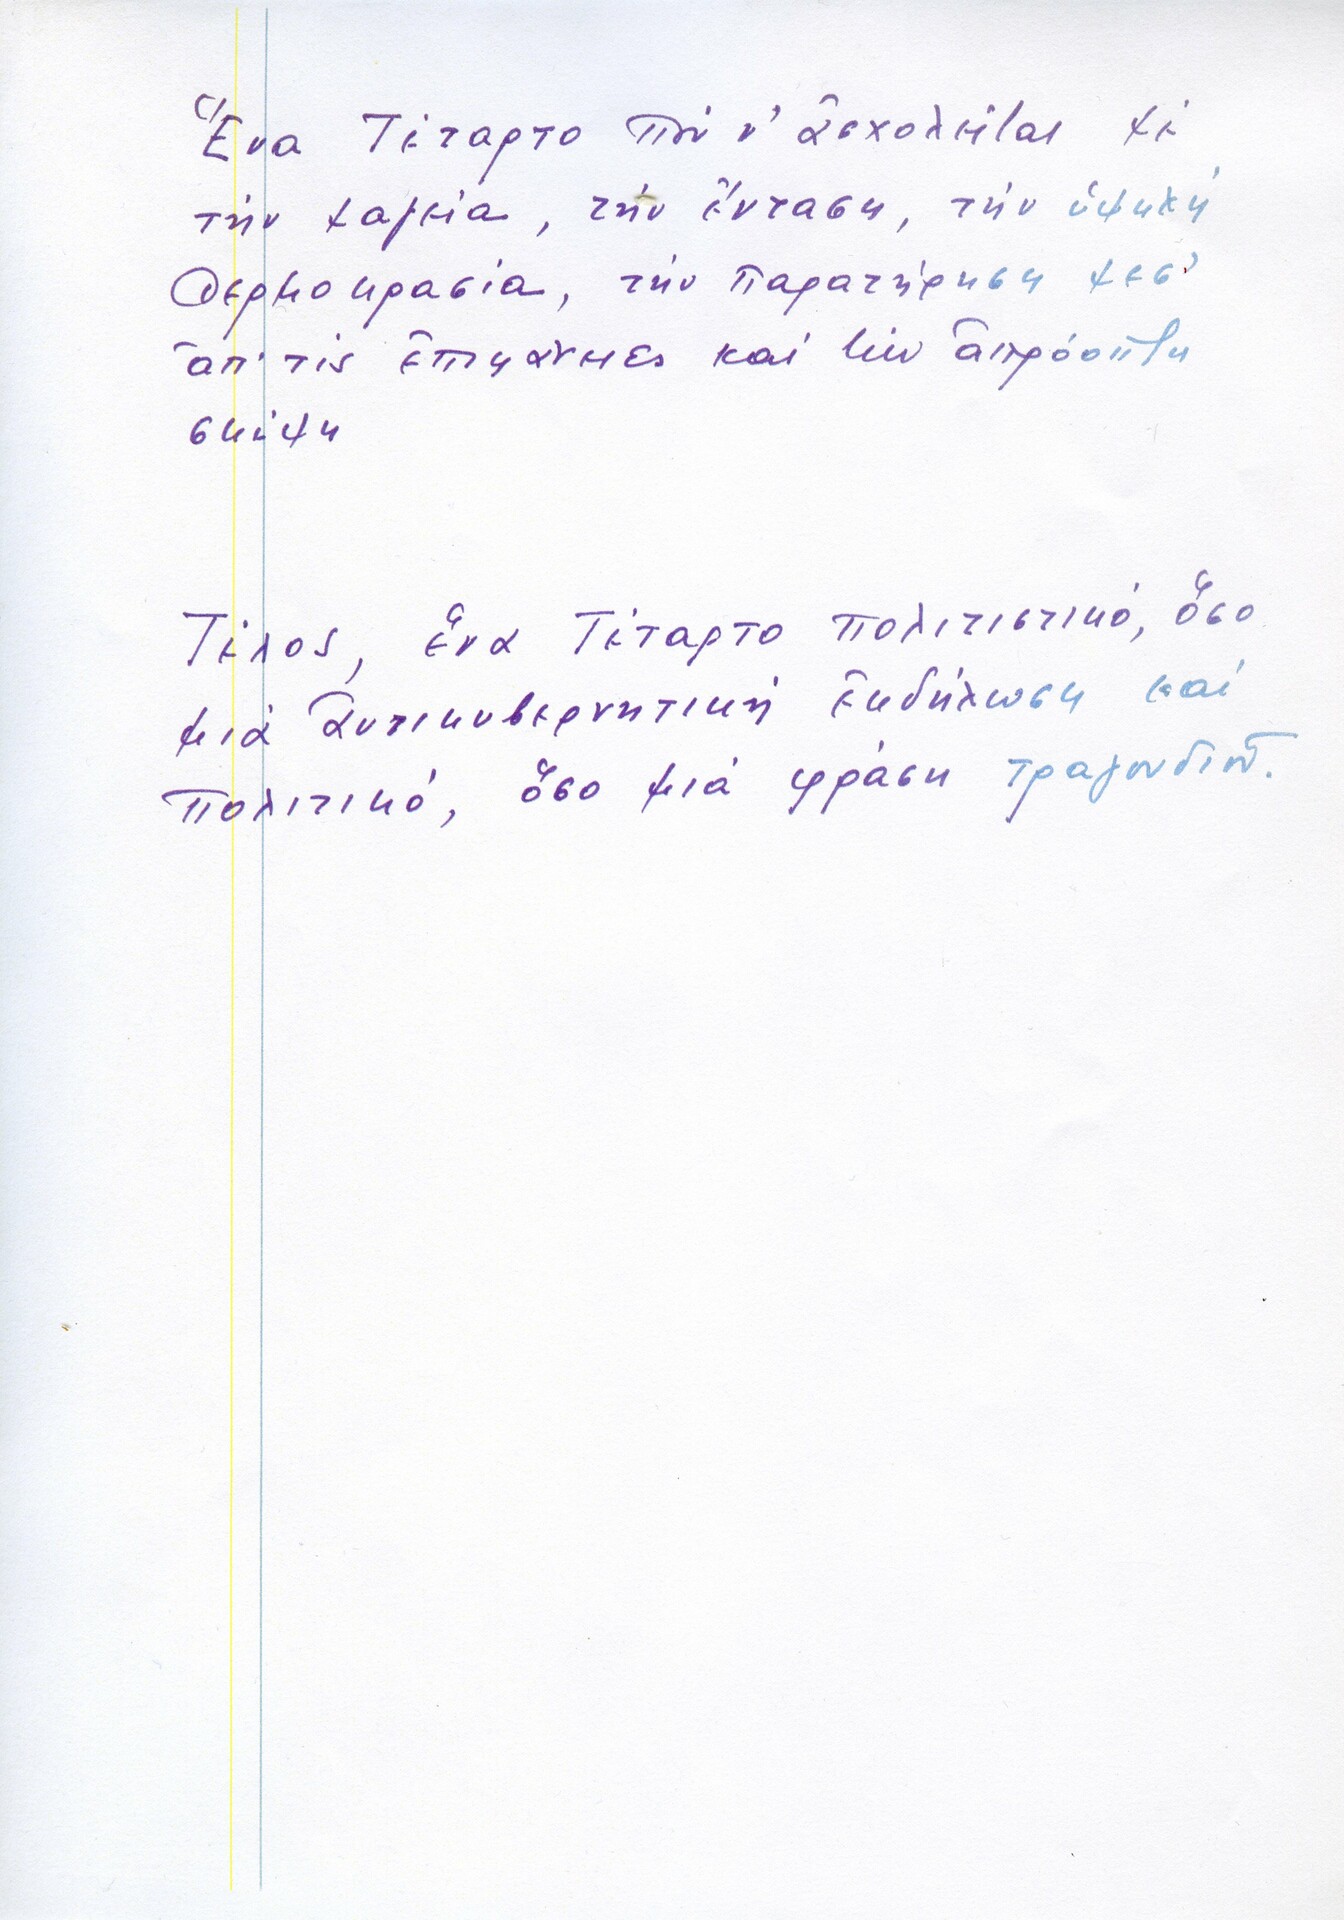 Ἕνα Τέταρτο πού ν' ἀσχολεῖται μέ
τήν μαγεία, τήν ἔνταση, τήν ὑψηλή
θερμοκρασία, τήν παρατήρηση μεσ'
ἀπ' τίς ἐπιφάνειες καί τήν ἀπρόοπτη
σκέψη
Τέλος, ἕνα Τέταρτο πολιτιστικό, ὅσο
μιά ἀντικυβερνητική ἐκδήλωση καί
πολιτικό, ὅσο μιά φράση τραγουδιοῦ.